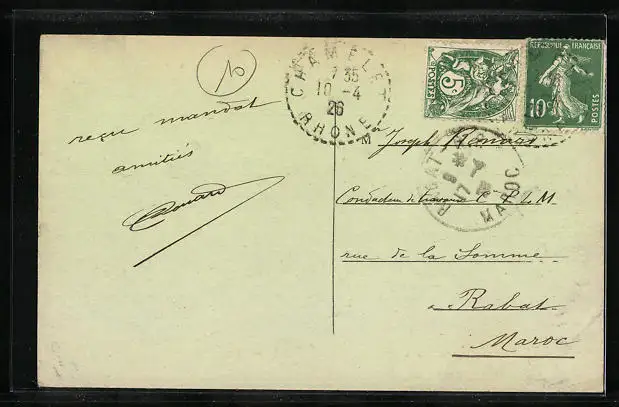 10
reçu mandat
amitiés
CHAMELET
7 35
10 - 4
26
RHONE
5c
POSTES
REPUBLIQUE FRANÇAISE
10c
POSTES
RABAT
MAROC
17
Joseph
Conducteur de travaux C P L M
rue de la Somme
a Rabat
Maroc